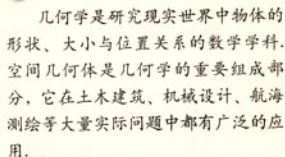 几何学是研究现实世界中物体的
形状、大小与位置关系的数学学科.
空间几何体是几何学的重要组成部
分，它在土木建筑、机械设计、航海
测绘等大量实际问题中都有广泛的应
用.